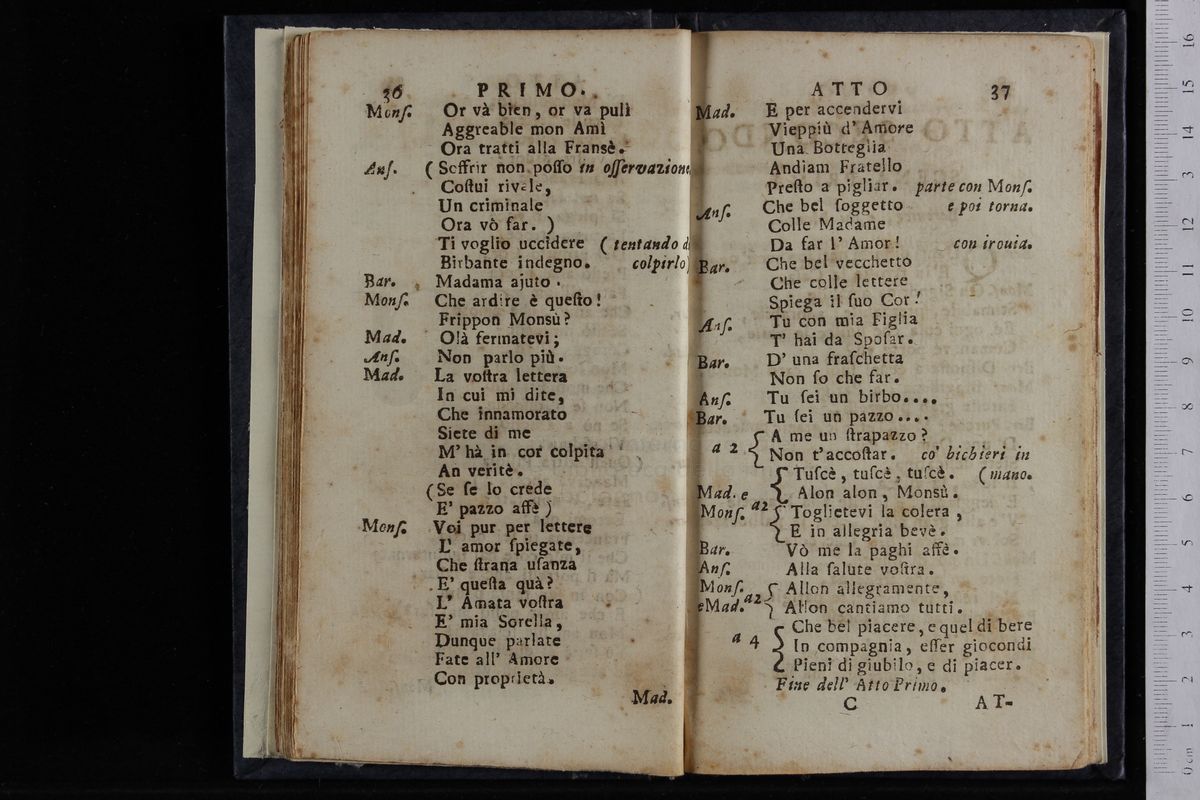 36 PRIMO.
Monſ. Or và bien, or va pulì
Aggreable mon Amì
Ora tratti alla Fransè.
Anſ. (Soffrir non poſſo in oſſervazione
Coſtui rivale,
Un criminale
Ora vò far. )
Ti voglio uccidere ( tentando di
Birbante indegno. colpirlo)
Bar. Madama ajuto.
Monſ. Che ardire è queſto!
Frippon Monsù?
Mad. Olà fermatevi;
Anſ. Non parlo più.
Mad. La voſtra lettera
In cui mi dite,
Che innamorato
Siete di me
M' hà in cor colpita
An veritè.
(Se ſe lo crede
E' pazzo affè)
Monſ. Voi pur per lettere
L' amor ſpiegate,
Che ſtrana uſanza
E' queſta quà?
L' Amata voſtra
E' mia Sorella,
Dunque parlate
Fate all' Amore
Con proprietà.
Mad.
ATTO 37
Mad. E per accendervi
Vieppiù d' Amore
Una Botteglia
Andiam Fratello
Preſto a pigliar. parte con Monſ.
Anſ. Che bel ſoggetto e poi torna.
Colle Madame
Da far l' Amor! con irouia.
Bar. Che bel vecchetto
Che colle lettere
Spiega il ſuo Cor!
Anſ. Tu con mia Figlia
T' hai da Spoſar.
Bar. D' una fraſchetta
Non ſo che far.
Anſ. Tu ſei un birbo....
Bar. Tu ſei un pazzo....
a 2 { A me un ſtrapazzo?
Non t'accoſtar. co' bichieri in
{ Tuſcè, tuſcè, tuſcè. (mano.
Mad. e Alon alon, Monsù.
Monſ. a2 { Toglietevi la colera,
E in allegria bevè.
Bar. Vò me la paghi affè.
Anſ. Alla ſalute voſtra.
Monſ. { Allon allegramente,
e Mad. a2 Allon cantiamo tutti.
{ Che bel piacere, e quel di bere
a 4 In compagnia, eſſer giocondi
Pieni di giubilo, e di piacer.
Fine dell' Atto Primo.
C AT-
0 cm 1 2 3 4 5 6 7 8 9 10 11 12 13 14 15 16